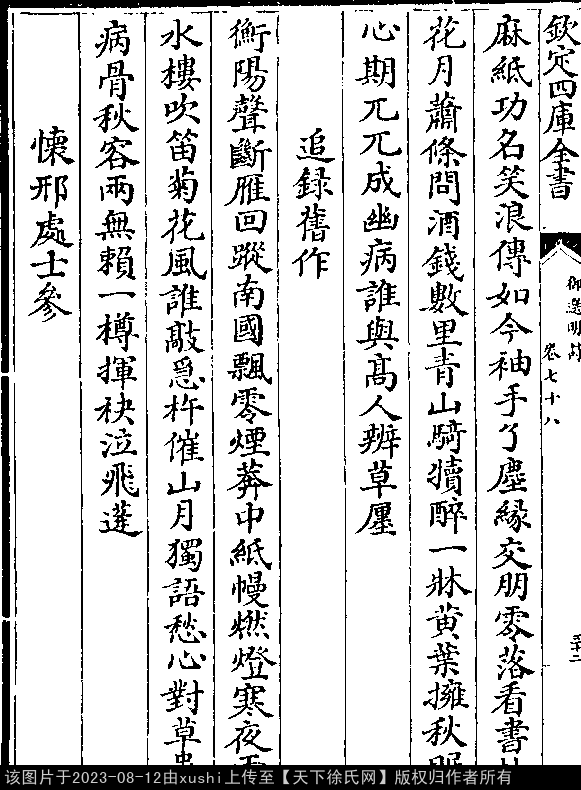 欽定四庫全書
御選明詩
卷七十八
麻紙功名笑浪傳如今袖手了塵緣交朋零落看書
花月蕭條問酒錢數里青山騎犢醉一牀黃葉擁秋眠
心期兀兀成幽病誰與高人辨草廛
追録舊作
衡陽聲斷雁回蹤南國飄零煙莽中紙幔燃燈寒夜
水樓吹笛菊花風誰敲急杵催山月獨語愁心對草
病骨秋容兩無頼一樽揮袂泣飛蓬
懐邢處士參
该图片于2023-08-12由xushi上传至【天下徐氏网】版权归作者所有